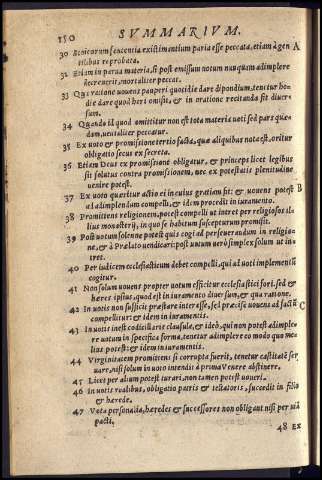 150 SVMMARIVM.
30 Stoicorum sententia existimantium paria esse peccata, etiam à gen A
tilibus reprobata.
31 Etiam in parua materia, si post emissum uotum nunquam adimplere
decreuerit, mortaliter peccat.
33 Qua ratione uouens pauperi quotidie dare dipondium, tenetur ho-
die dare quod heri omisit, & in oratione recitanda sit diuer-
sum.
34 Quando id quod omittitur non est tota materia uoti sed pars quæ-
dam, uenialiter peccatur.
35 Ex uoto & promissione tertio facta, quæ aliquibus nota est, oritur
obligatio secus ex secreta.
36 Etiam Deus ex promissione obligatur, & princeps licet legibus
sit solutus contra promissionem, nec ex potestatis plenitudine
uenire potest.
37 Ex uoto quæritur actio ei in cuius gratiam fit: & uouens potest B
ad adimplendum compelli, & idem procedit in iuramento.
38 Promittens religionem, potest compelli ut intret per religiosos il-
lius monasterij, in quo se habitum suscepturum promisit.
39 Post uotum solenne potest quis cogi ad perseuerandum in religio-
ne, & à Prælato uendicari: post uotum uerò simplex solum ut in-
tret.
40 Per iudicem ecclesiasticum debet compelli, qui ad uoti implementum
cogitur.
41 Non solum uouens propter uotum efficitur ecclesiastici fori, sed &
hæres ipsius, quod est in iuramento diuersum, & qua ratione.
42 In uotis non sufficit præstare interesse, sed præcisè uouens ad factum
compellitur: & idem in iuramentis. C
43 In uotis inest codicillaris clausula, & ideò, qui non potest adimple-
re uotum in specifica forma, tenetur adimplere eo modo quo me-
lius potest: & idem in iuramento.
44 Virginitatem promittens si corrupta fuerit, tenetur castitatē ser
uare, nisi solum in uoto intendit à prima Venere abstinere.
45 Licet per alium potest iurari, non tamen potest uoueri.
46 In uotis realibus, obligatio patris & testatoris, succedit in filio
& hærede.
47 Vota personalia, hæredes & successores non obligant nisi per uiā
pacti.
48 EX